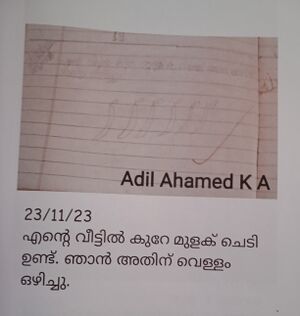 Adil Ahamed K A
23/11/23
എന്റെ വീട്ടിൽ കുറേ മുളക് ചെടി
ഉണ്ട്. ഞാൻ അതിന് വെള്ളം
ഒഴിച്ചു.